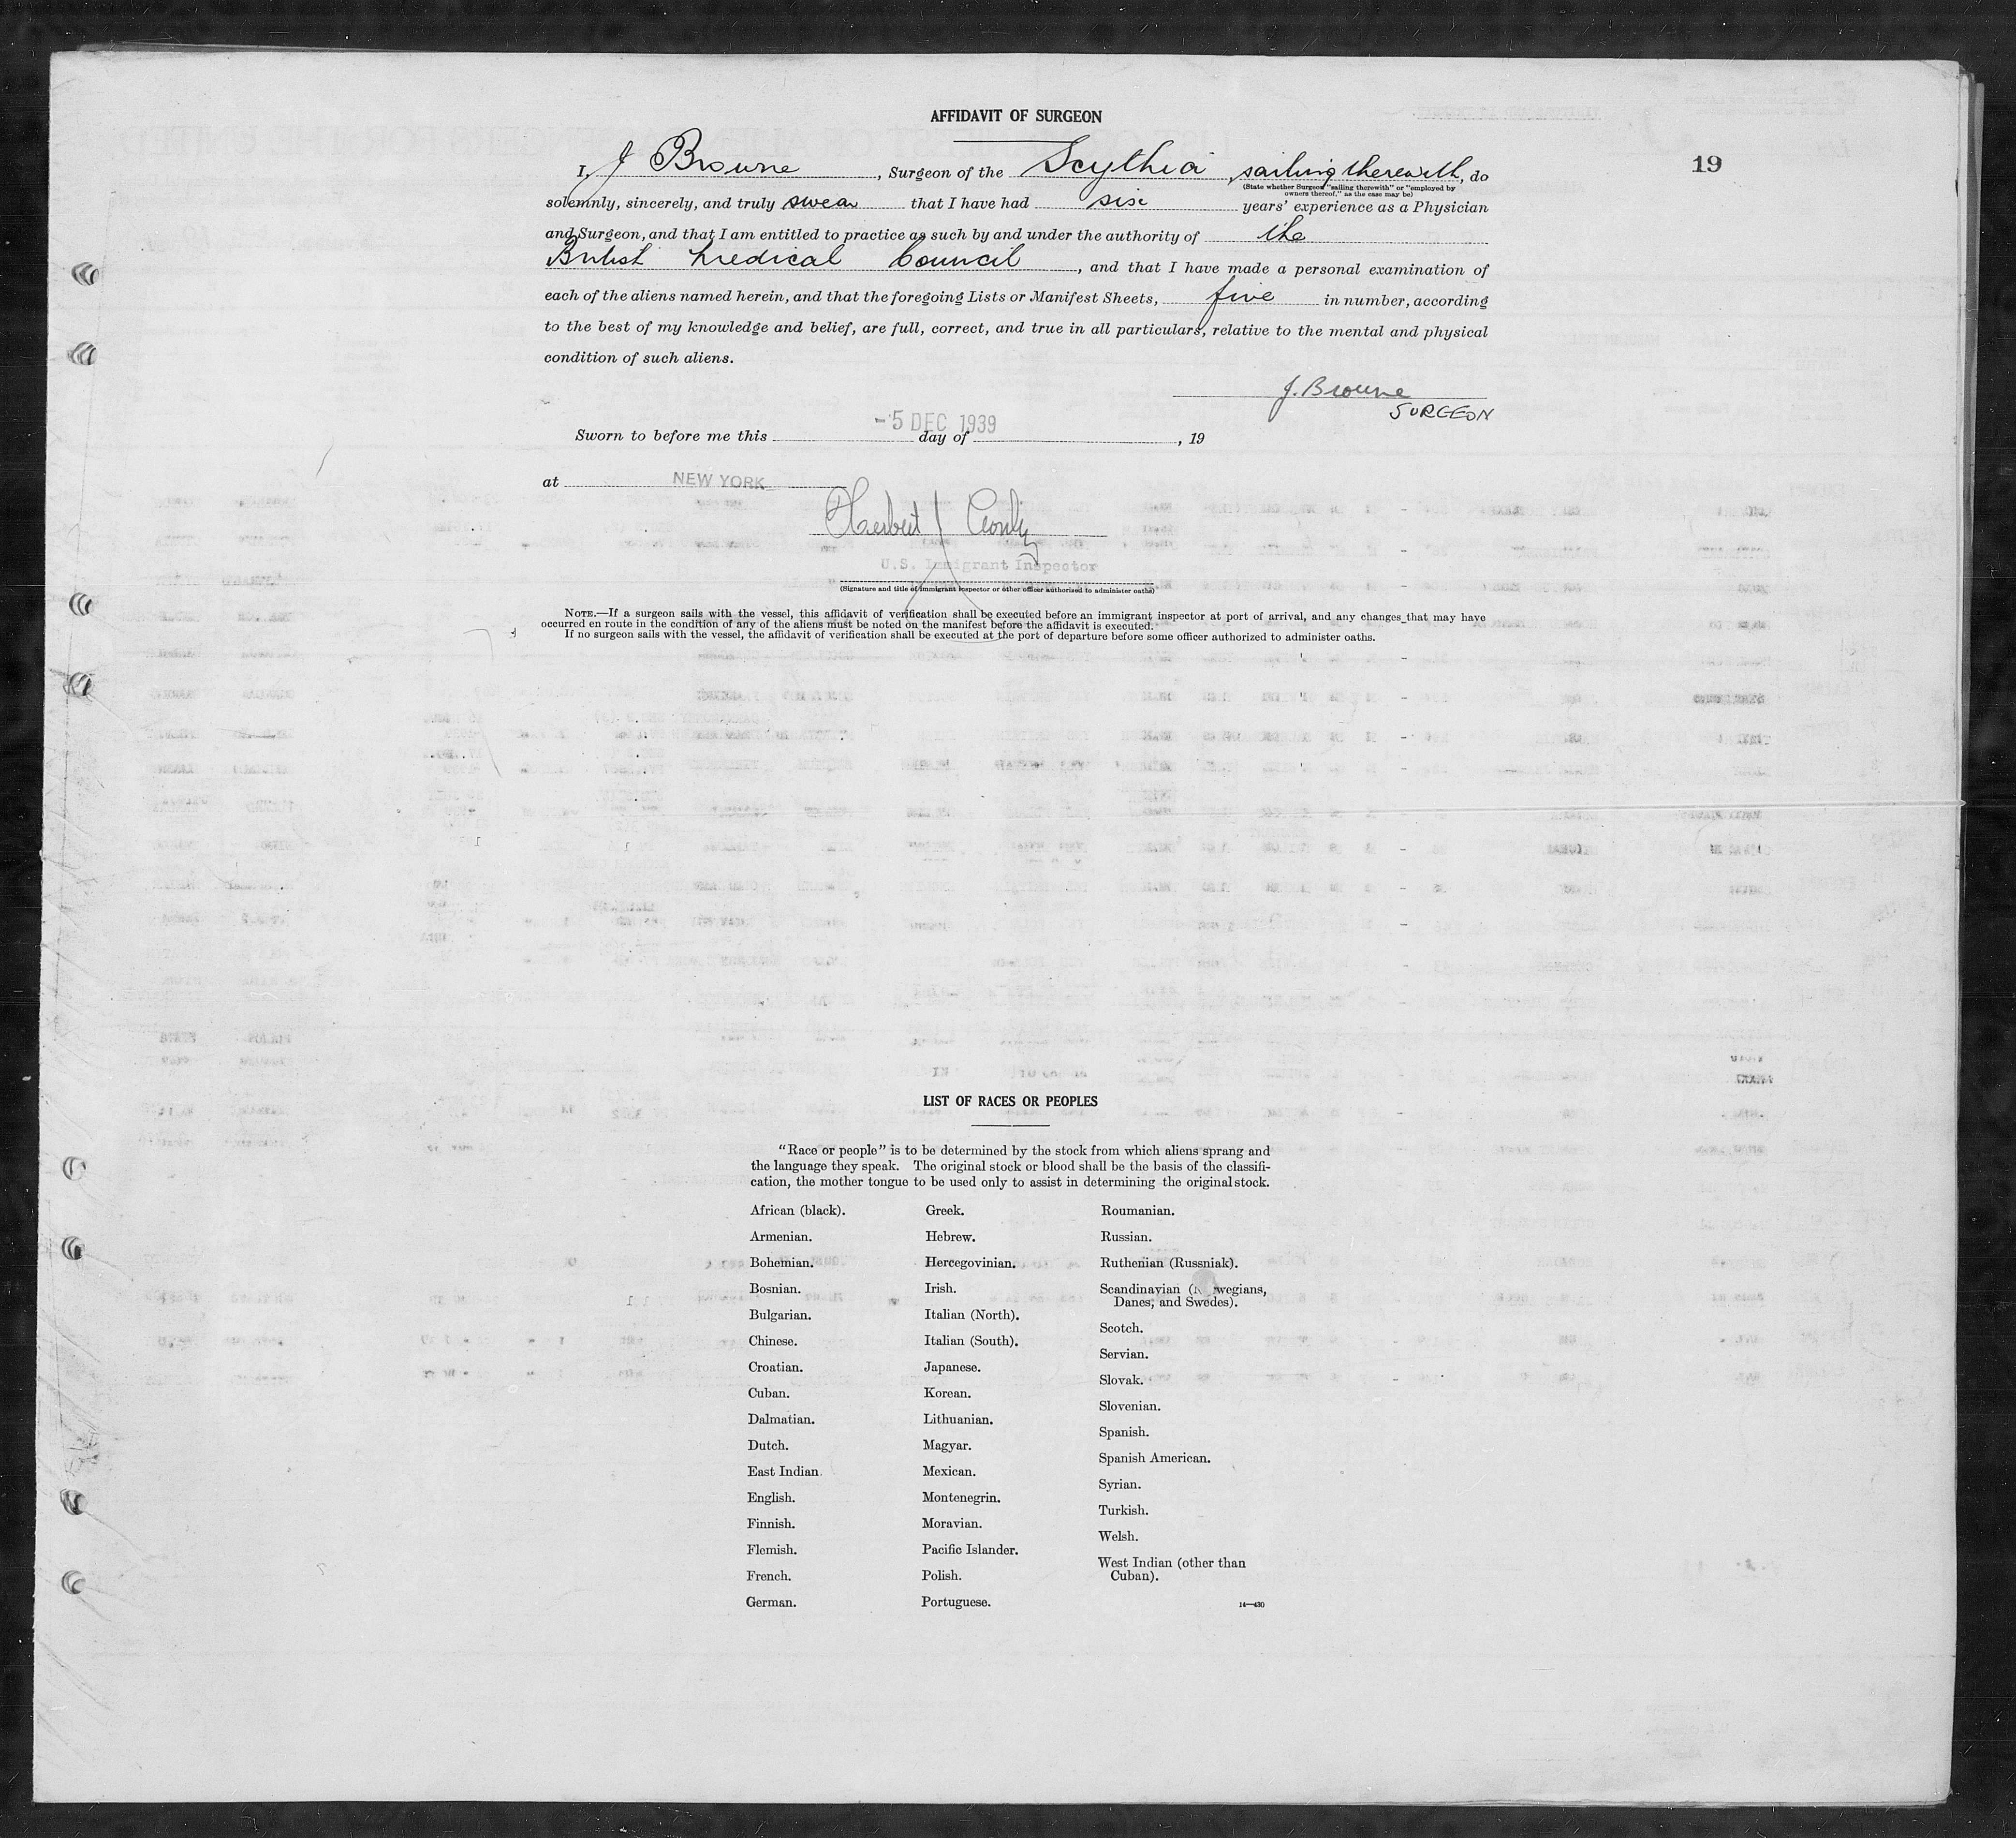 AFFIDAVIT OF SURGEON
19
I, J Browne, Surgeon of the Scythia, sailing therewith, do
(State whether Surgeon "sailing therewith" or "employed by
owners thereof," as the case may be)
solemnly, sincerely, and truly swear that I have had six years' experience as a Physician
and Surgeon, and that I am entitled to practice as such by and under the authority of the
British Medical Council, and that I have made a personal examination of
each of the aliens named herein, and that the foregoing Lists or Manifest Sheets, five in number, according
to the best of my knowledge and belief, are full, correct, and true in all particulars, relative to the mental and physical
condition of such aliens.
J. Browne
SURGEON
-5 DEC 1939
Sworn to before me this day of , 19
at NEW YORK
Herbert
U.S. Immigrant Inspector
(Signature and title of immigrant inspector or other officer authorized to administer oaths)
NOTE.—If a surgeon sails with the vessel, this affidavit of verification shall be executed before an immigrant inspector at port of arrival, and any changes that may have
occurred en route in the condition of any of the aliens must be noted on the manifest before the affidavit is executed.
If no surgeon sails with the vessel, the affidavit of verification shall be executed at the port of departure before some officer authorized to administer oaths.
LIST OF RACES OR PEOPLES
"Race or people" is to be determined by the stock from which aliens sprang and
the language they speak. The original stock or blood shall be the basis of the classifi-
cation, the mother tongue to be used only to assist in determining the original stock.
African (black).
Armenian.
Bohemian.
Bosnian.
Bulgarian.
Chinese.
Croatian.
Cuban.
Dalmatian.
Dutch.
East Indian.
English.
Finnish.
Flemish.
French.
German.
Greek.
Hebrew.
Hercegovinian.
Irish.
Italian (North).
Italian (South).
Japanese.
Korean.
Lithuanian.
Magyar.
Mexican.
Montenegrin.
Moravian.
Pacific Islander.
Polish.
Portuguese.
Roumanian.
Russian.
Ruthenian (Russniak).
Scandinavian (Norwegians,
Danes, and Swedes).
Scotch.
Servian.
Slovak.
Slovenian.
Spanish.
Spanish American.
Syrian.
Turkish.
Welsh.
West Indian (other than
Cuban).
14—430